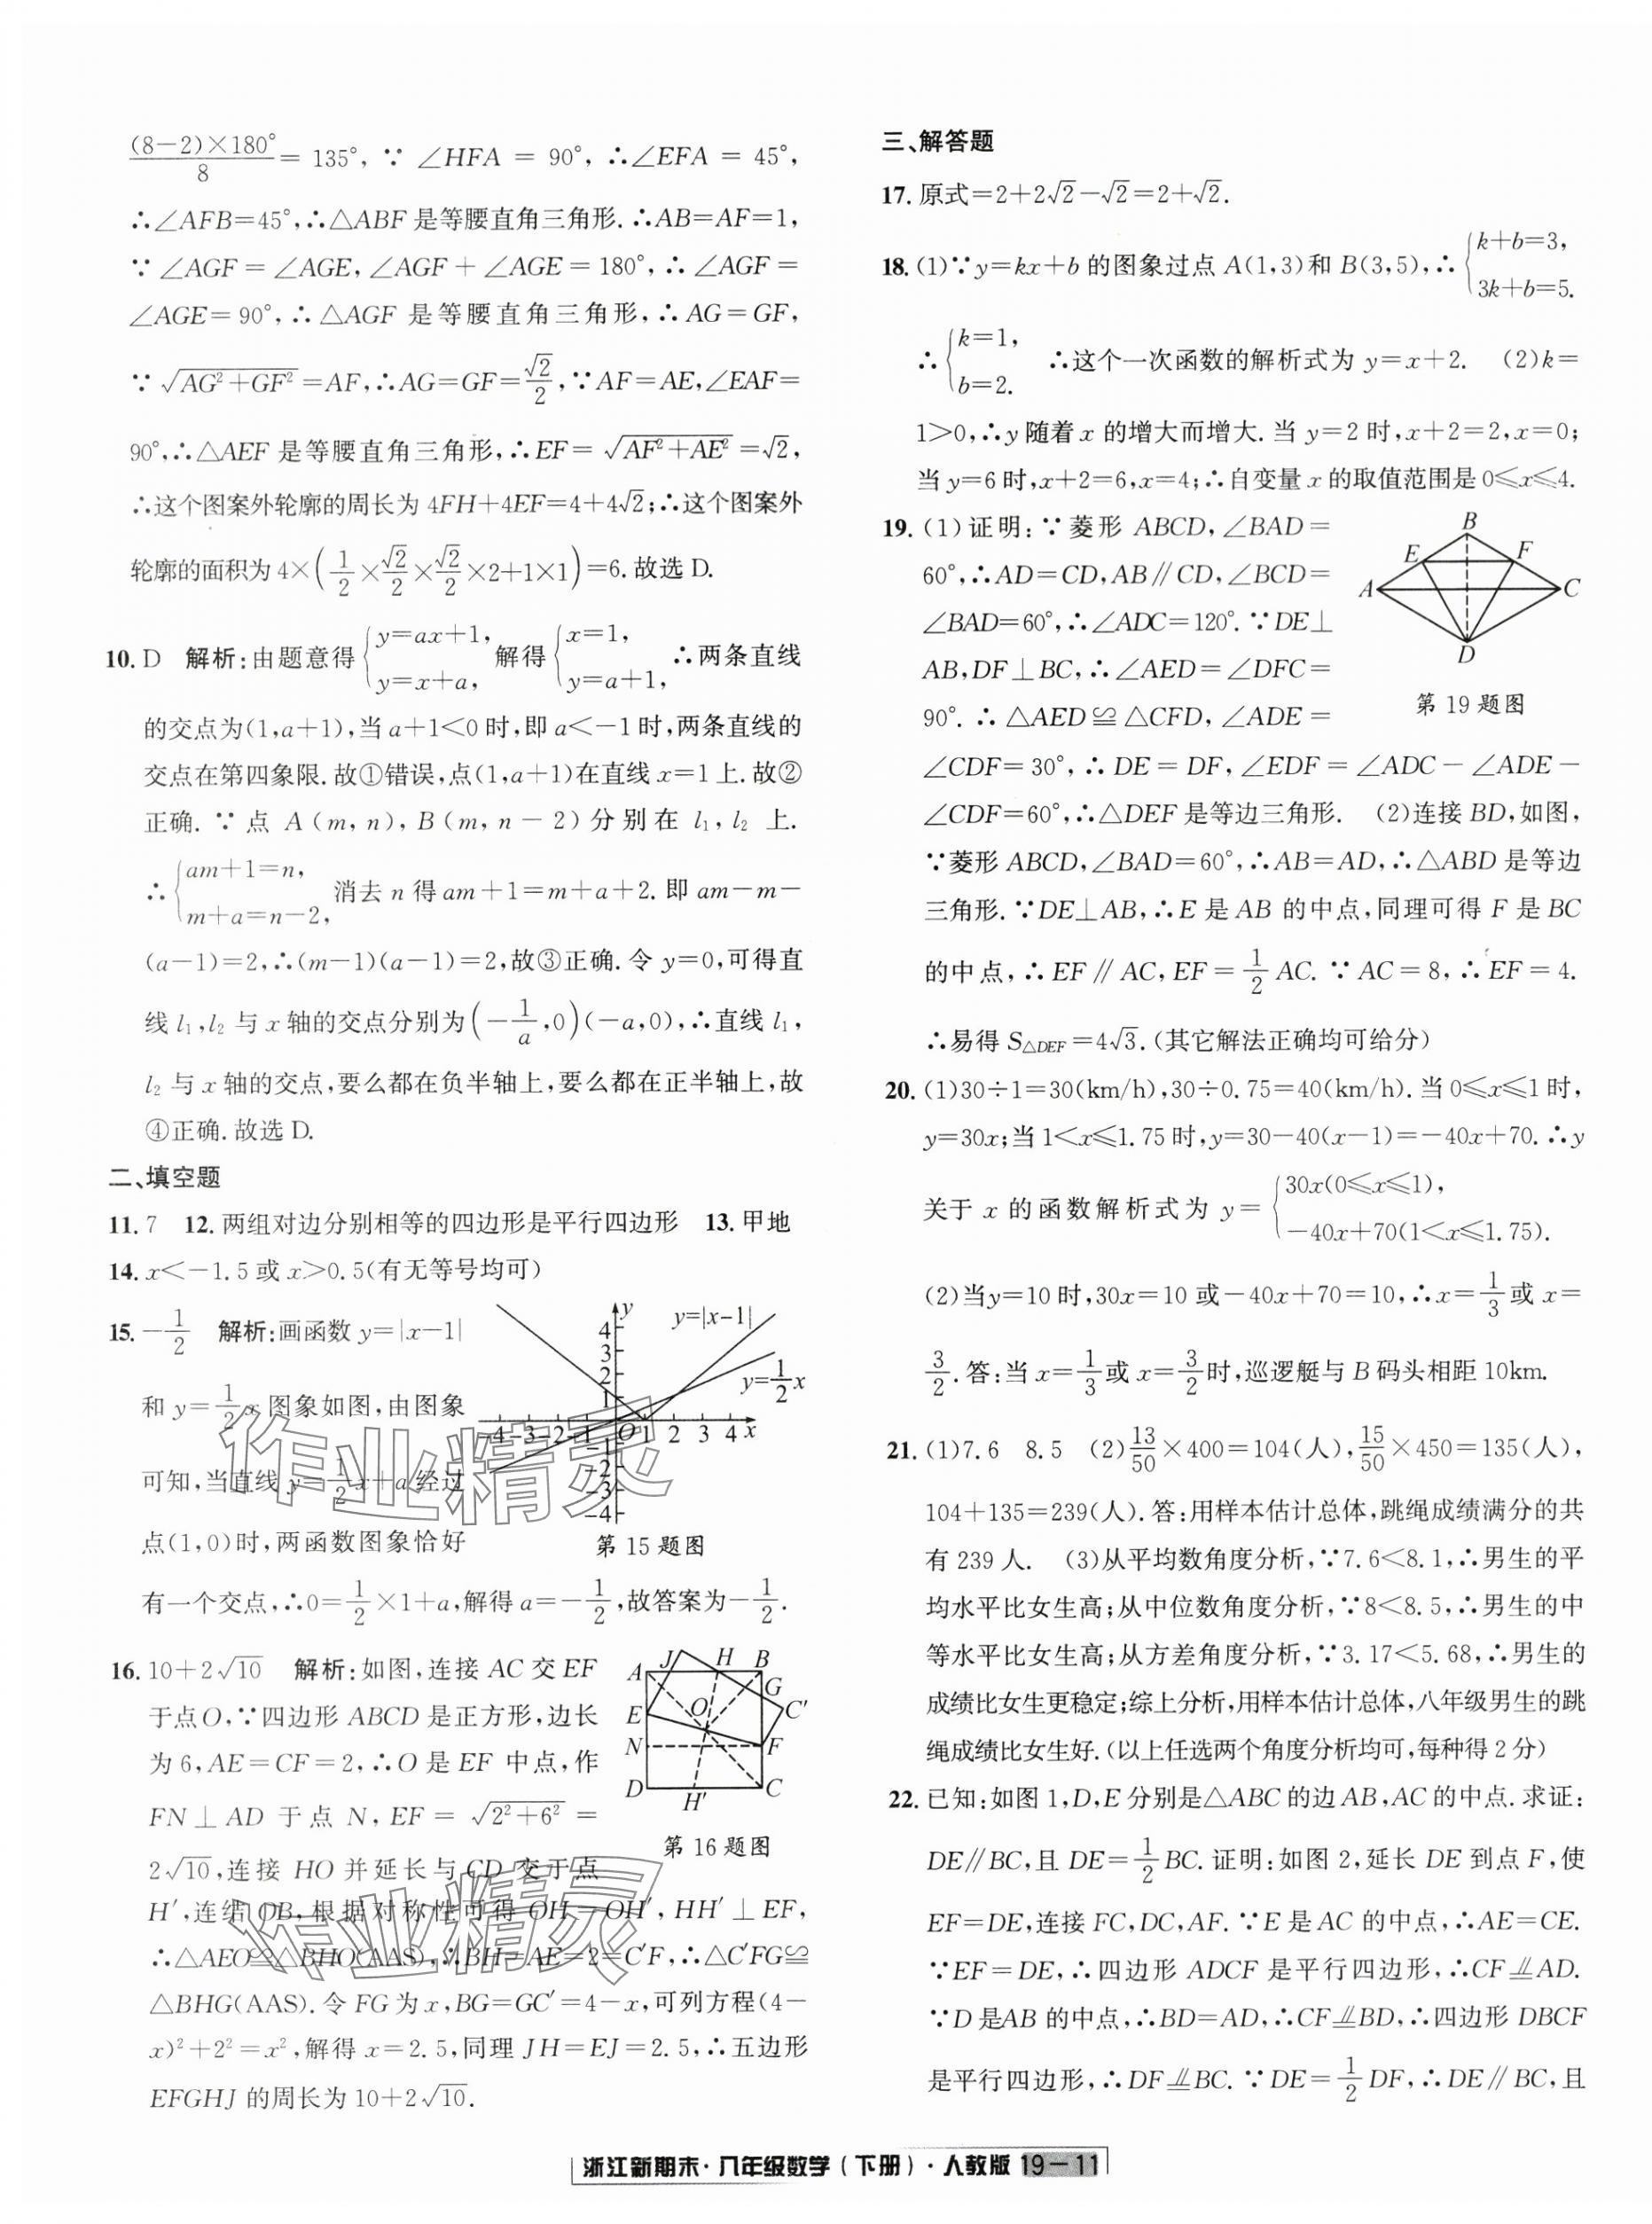 $\frac{(8-2)×180°}{8}$ = 135°, ∵ ∠HFA = 90°, ∴∠EFA = 45°,
∴∠AFB=45°,∴△ABF 是等腰直角三角形.∴AB=AF=1,
∵ ∠AGF = ∠AGE, ∠AGF + ∠AGE = 180°, ∴ ∠AGF =
∠AGE= 90°, ∴ △AGF 是等腰直角三角形, ∴ AG=GF,
∵ $\sqrt{AG²+GF²}$=AF,∴AG=GF=$\frac{\sqrt{2}}{2}$,∵AF=AE,∠EAF=
90°,∴△AEF 是等腰直角三角形,∴EF= $\sqrt{AF²+AE²}$ =√2,
∴这个图案外轮廓的周长为 4FH+4EF=4+4√2;∴这个图案外
轮廓的面积为 4×($\frac{1}{2}$×$\frac{\sqrt{2}}{2}$×$\frac{\sqrt{2}}{2}$×2+1×1)=6.故选 D.
10. D 解析:由题意得{y=ax+1, y=x+a, 解得{x=1, y=a+1, ∴两条直线
的交点为(1,a+1),当 a+1<0 时,即 a<-1 时,两条直线的
交点在第四象限.故①错误,点(1,a+1)在直线 x=1 上.故②
正确. ∵ 点 A(m, n), B(m, n-2)分别在 l₁, l₂ 上.
∴{am+1=n, m+a=n-2, 消去 n 得 am+1=m+a+2.即 am-m-
(a-1)=2,∴(m-1)(a-1)=2,故③正确.令 y=0,可得直
线 l₁,l₂ 与 x 轴的交点分别为(-$\frac{1}{a}$,0)(-a,0),∴直线 l₁,
l₂ 与 x 轴的交点,要么都在负半轴上,要么都在正半轴上,故
④正确.故选 D.
二、填空题
11. 7 12. 两组对边分别相等的四边形是平行四边形 13. 甲地
14. x<-1.5 或 x>0.5(有无等号均可)
15. -$\frac{1}{2}$ 解析:画函数 y=|x-1|
和 y=$\frac{1}{2}$x 图象如图,由图象
可知,当直线 y=$\frac{1}{2}$x+a 经过
点(1,0)时,两函数图象恰好
y
y=|x-1|
4
3
2
1
y=$\frac{1}{2}$x
-4 -3 -2 -1 O 1 2 3 4 x
-1
-2
-3
-4
第 15 题图
有一个交点,∴0=$\frac{1}{2}$×1+a,解得 a=-$\frac{1}{2}$,故答案为-$\frac{1}{2}$.
16. 10+2√10 解析:如图,连接 AC 交 EF
于点 O,∵四边形 ABCD 是正方形,边长
为 6,AE=CF=2,∴O 是 EF 中点,作
FN⊥AD 于点 N, EF = $\sqrt{2²+6²}$ =
2√10,连接 HO 并延长与 CD 交于点
J H B
A G
E O C′
N F
D H′ C
第 16 题图
H′,连结 OB,根据对称性可得 OH=OH′, HH′⊥EF,
∴△AEO≌△BHO(AAS),∴BH=AE=2=C′F,∴△C′FG≌
△BHG(AAS).令 FG 为 x,BG=GC′=4-x,可列方程(4-
x)²+2²=x²,解得 x=2.5,同理 JH=EJ=2.5,∴五边形
EFGHJ 的周长为 10+2√10.
三、解答题
17. 原式=2+2√2-√2=2+√2.
18. (1)∵y=kx+b 的图象过点 A(1,3)和 B(3,5),∴{k+b=3, 3k+b=5.
∴{k=1, b=2. ∴这个一次函数的解析式为 y=x+2. (2)k=
1>0,∴y 随着 x 的增大而增大.当 y=2 时,x+2=2,x=0;
当 y=6 时,x+2=6,x=4;∴自变量 x 的取值范围是 0≤x≤4.
19. (1)证明:∵菱形 ABCD,∠BAD=
60°,∴AD=CD,AB∥CD,∠BCD=
∠BAD=60°,∴∠ADC=120°.∵DE⊥
AB,DF⊥BC,∴∠AED=∠DFC=
90°.∴ △AED≌△CFD, ∠ADE =
B
E F
A C
D
第 19 题图
∠CDF=30°,∴DE=DF,∠EDF=∠ADC-∠ADE-
∠CDF=60°,∴△DEF 是等边三角形. (2)连接 BD,如图,
∵菱形 ABCD,∠BAD=60°,∴AB=AD,∴△ABD 是等边
三角形.∵DE⊥AB,∴E 是 AB 的中点,同理可得 F 是 BC
的中点,∴EF∥AC,EF=$\frac{1}{2}$AC.∵AC=8,∴EF=4.
∴易得 S△DEF=4√3.(其它解法正确均可给分)
20. (1)30÷1=30(km/h),30÷0.75=40(km/h).当 0≤x≤1 时,
y=30x;当 1<x≤1.75 时,y=30-40(x-1)=-40x+70.∴y
关于 x 的函数解析式为 y={30x(0≤x≤1), -40x+70(1<x≤1.75).
(2)当y=10 时,30x=10 或-40x+70=10,∴x=$\frac{1}{3}$或 x=
$\frac{3}{2}$.答:当 x=$\frac{1}{3}$或 x=$\frac{3}{2}$时,巡逻艇与 B 码头相距 10km.
21. (1)7.6 8.5 (2)$\frac{13}{50}$×400=104(人),$\frac{15}{50}$×450=135(人),
104+135=239(人).答:用样本估计总体,跳绳成绩满分的共
有 239 人. (3)从平均数角度分析,∵7.6<8.1,∴男生的平
均水平比女生高;从中位数角度分析,∵8<8.5,∴男生的中
等水平比女生高;从方差角度分析,∵3.17<5.68,∴男生的
成绩比女生更稳定;综上分析,用样本估计总体,八年级男生的跳
绳成绩比女生好.(以上任选两个角度分析均可,每种得 2 分)
22. 已知:如图 1,D,E 分别是△ABC 的边 AB,AC 的中点.求证:
DE∥BC,且 DE=$\frac{1}{2}$BC.证明:如图 2,延长 DE 到点 F,使
EF=DE,连接 FC,DC,AF.∵E 是 AC 的中点,∴AE=CE.
∵EF=DE,∴四边形 ADCF 是平行四边形,∴CF⥣AD.
∵D 是AB 的中点,∴BD=AD,∴CF⥣BD,∴四边形 DBCF
是平行四边形,∴DF⥣BC.∵DE=$\frac{1}{2}$DF,∴DE∥BC,且
浙江新期末·八年级数学(下册)·人教版 19-11
作业精灵
作业精灵